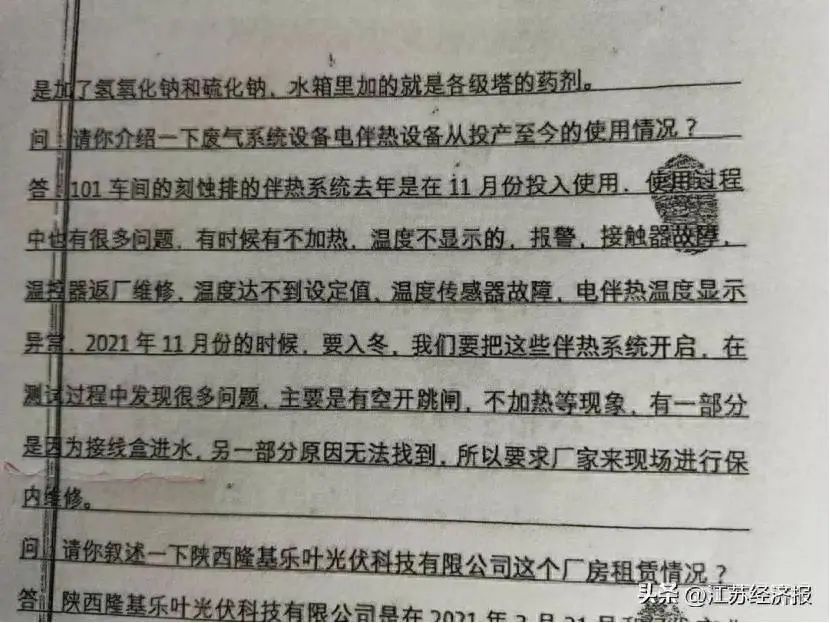 是加了氢氧化钠和硫化钠，水箱里加的就是各级塔的药剂。
问：请你介绍一下废气系统设备电伴热设备从投产至今的使用情况？
答：101车间的刻蚀排的伴热系统去年是在11月份投入使用，使用过程
中也有很多问题，有时候有不加热，温度不显示的，报警，接触器故障，
温控器返厂维修，温度达不到设定值、温度传感器故障，电伴热温度显示
异常，2021年11月份的时候，要入冬，我们要把这些伴热系统开启，在
测试过程中发现很多问题，主要是有空开跳闸，不加热等现象，有一部分
是因为接线盒进水，另一部分原因无法找到，所以要求厂家来现场进行保
内维修。
问：请你叙述一下陕西隆基乐叶光伏科技有限公司这个厂房租赁情况？
答：陕西隆基乐叶光伏科技有限公司是在2021年
头条 @江苏经济报